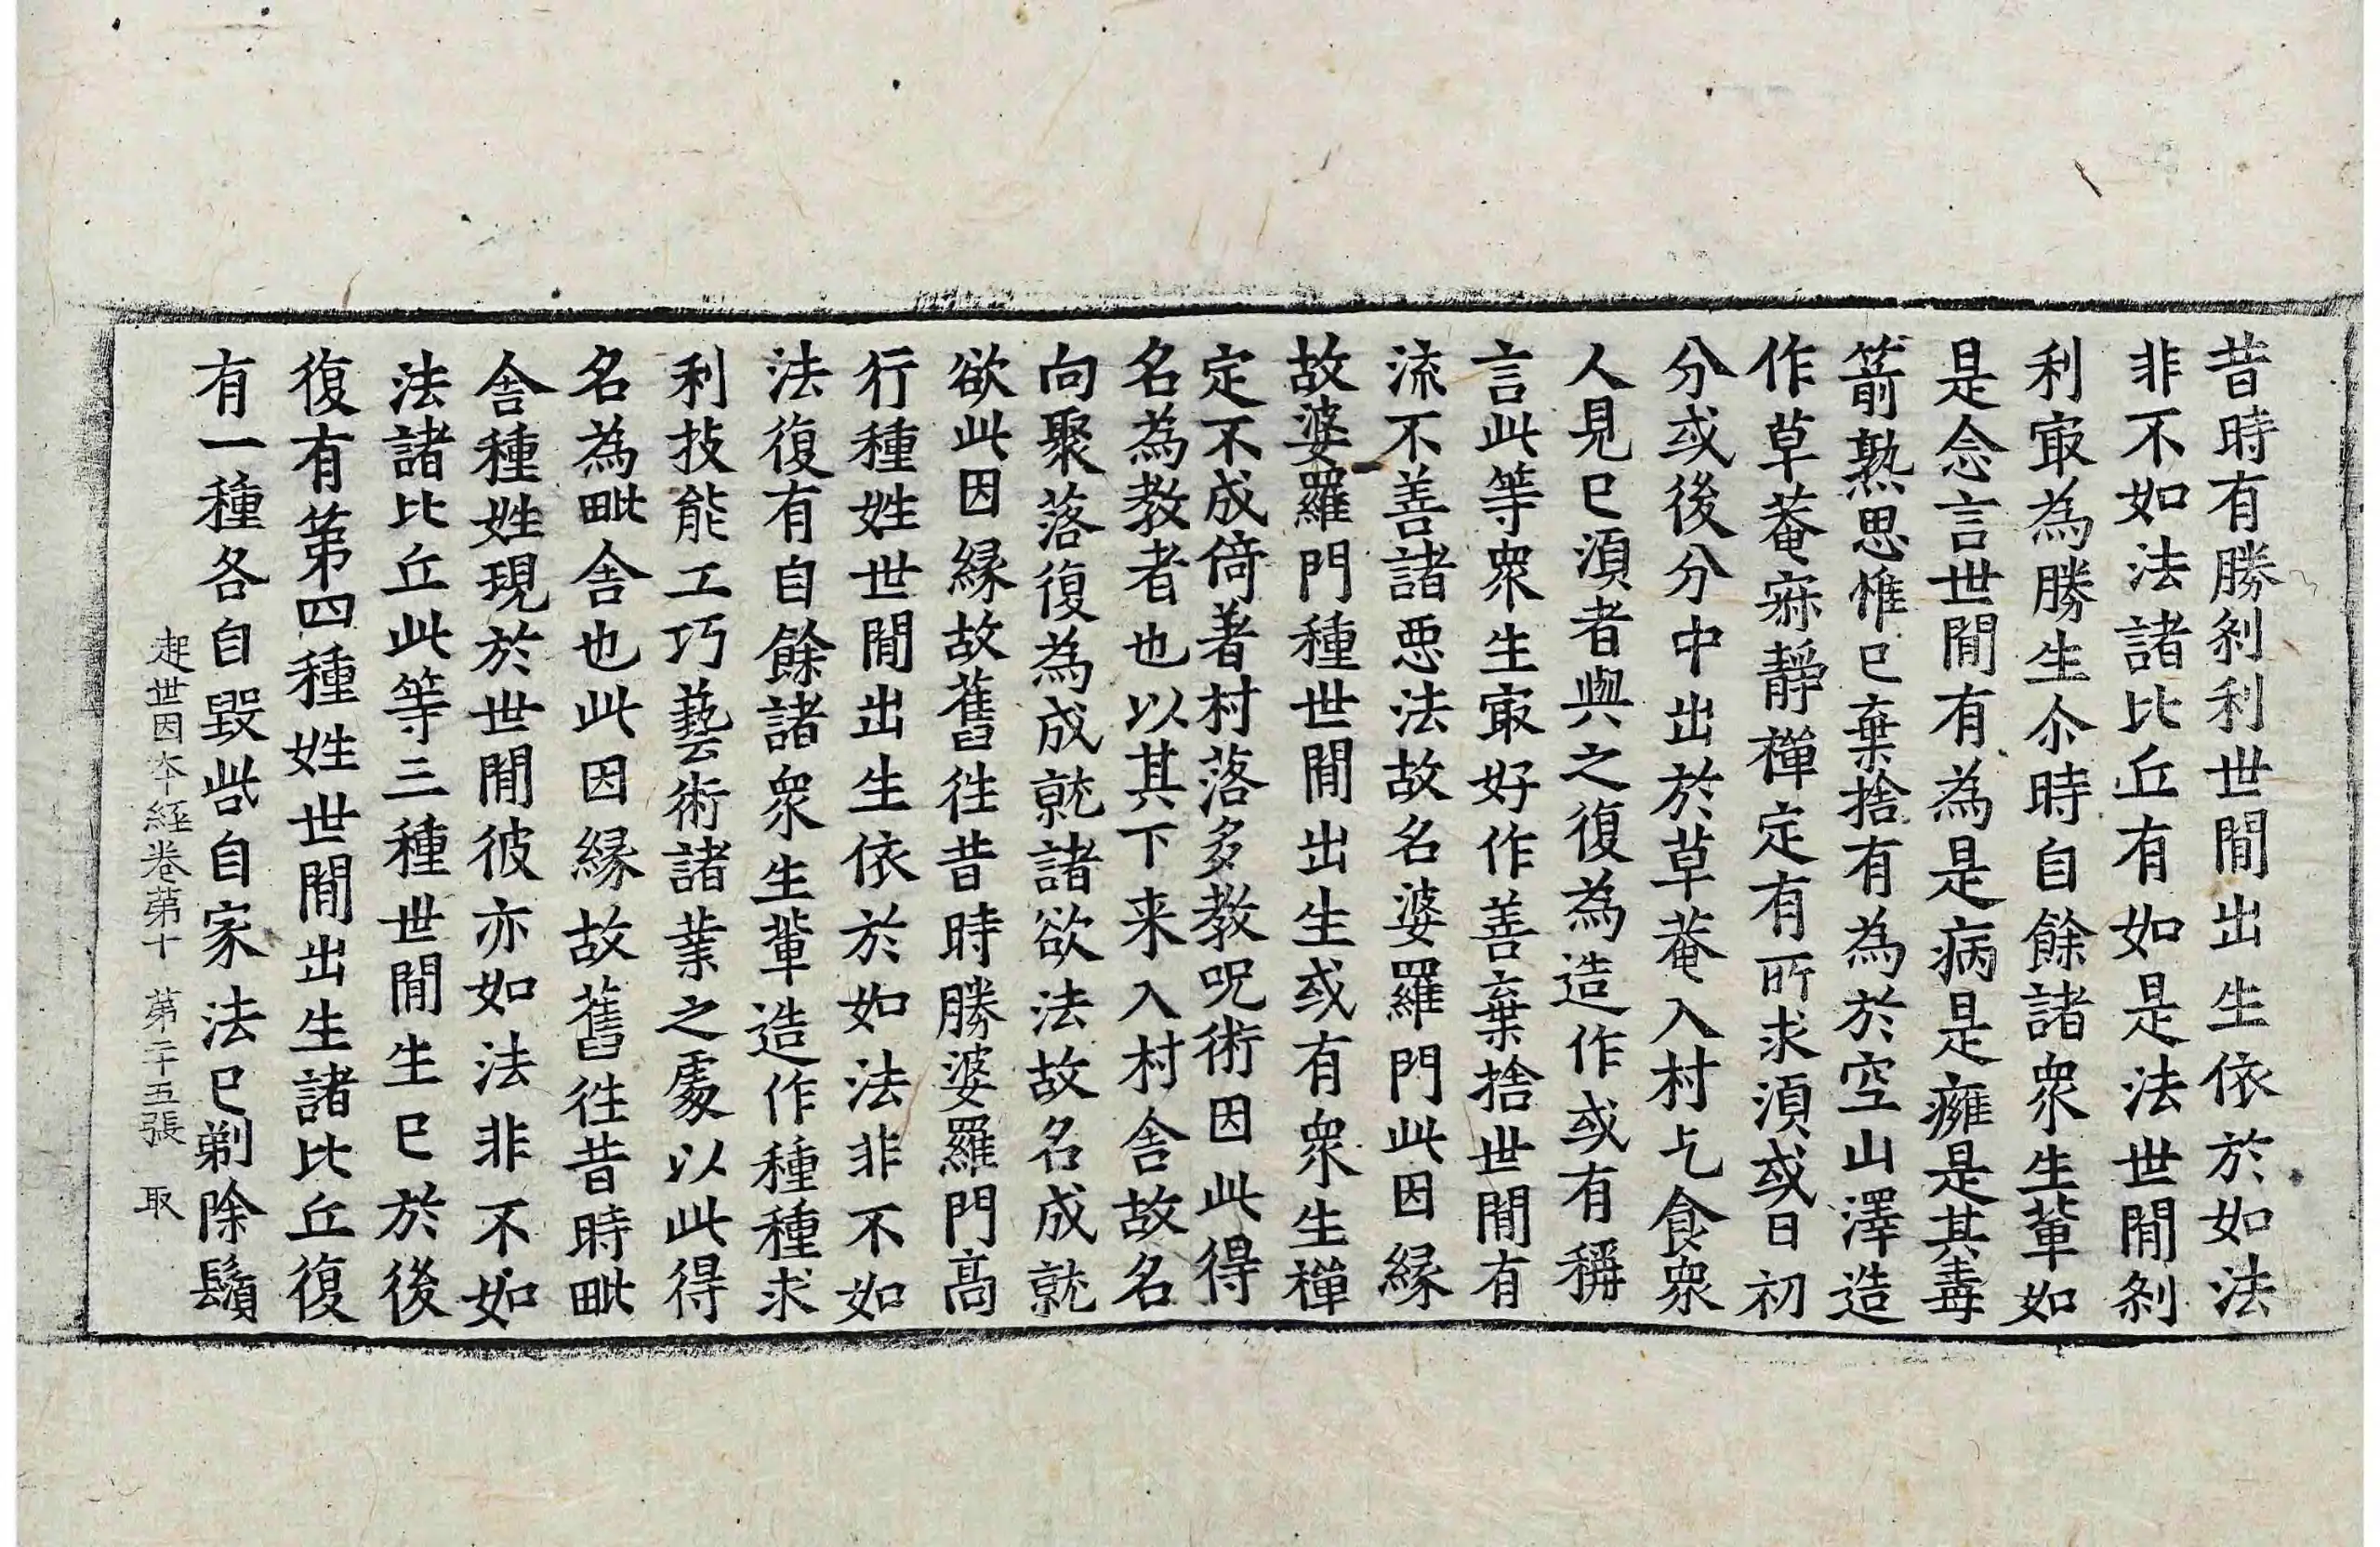 昔時有勝刹利世間出生依於如法
非不如法諸比丘有如是法世間刹
利㝡為勝生尒時自餘諸衆生軰如
是念言世間有為是病是癰是其毒
箭熟思惟已棄捨有為於空山澤造
作草菴寂靜禪定有所求湏或日初
分或後分中出於草菴入村乞食衆
人見已湏者與之復為造作或有稱
言此等衆生㝡好作善棄捨世間有
流不善諸惡法故名婆羅門此因縁
故婆羅門種世間出生或有衆生禪
定不成倚著村落多教呪術因此得
名為教者也以其下来入村舎故名
向聚落復為成就諸欲法故名成就
欲此因縁故舊徃昔時勝婆羅門髙
行種姓世間出生依於如法非不如
法復有自餘諸衆生軰造作種種求
利技能工巧藝術諸業之處以此得
名為毗舎也此因縁故舊徃昔時毗
舎種姓現於世間彼亦如法非不如
法諸比丘此等三種世間生已於後
復有第四種姓世間出生諸比丘復
有一種各自毀呰自家法已剃除鬚
起世因本經卷第十　第二十五張　取